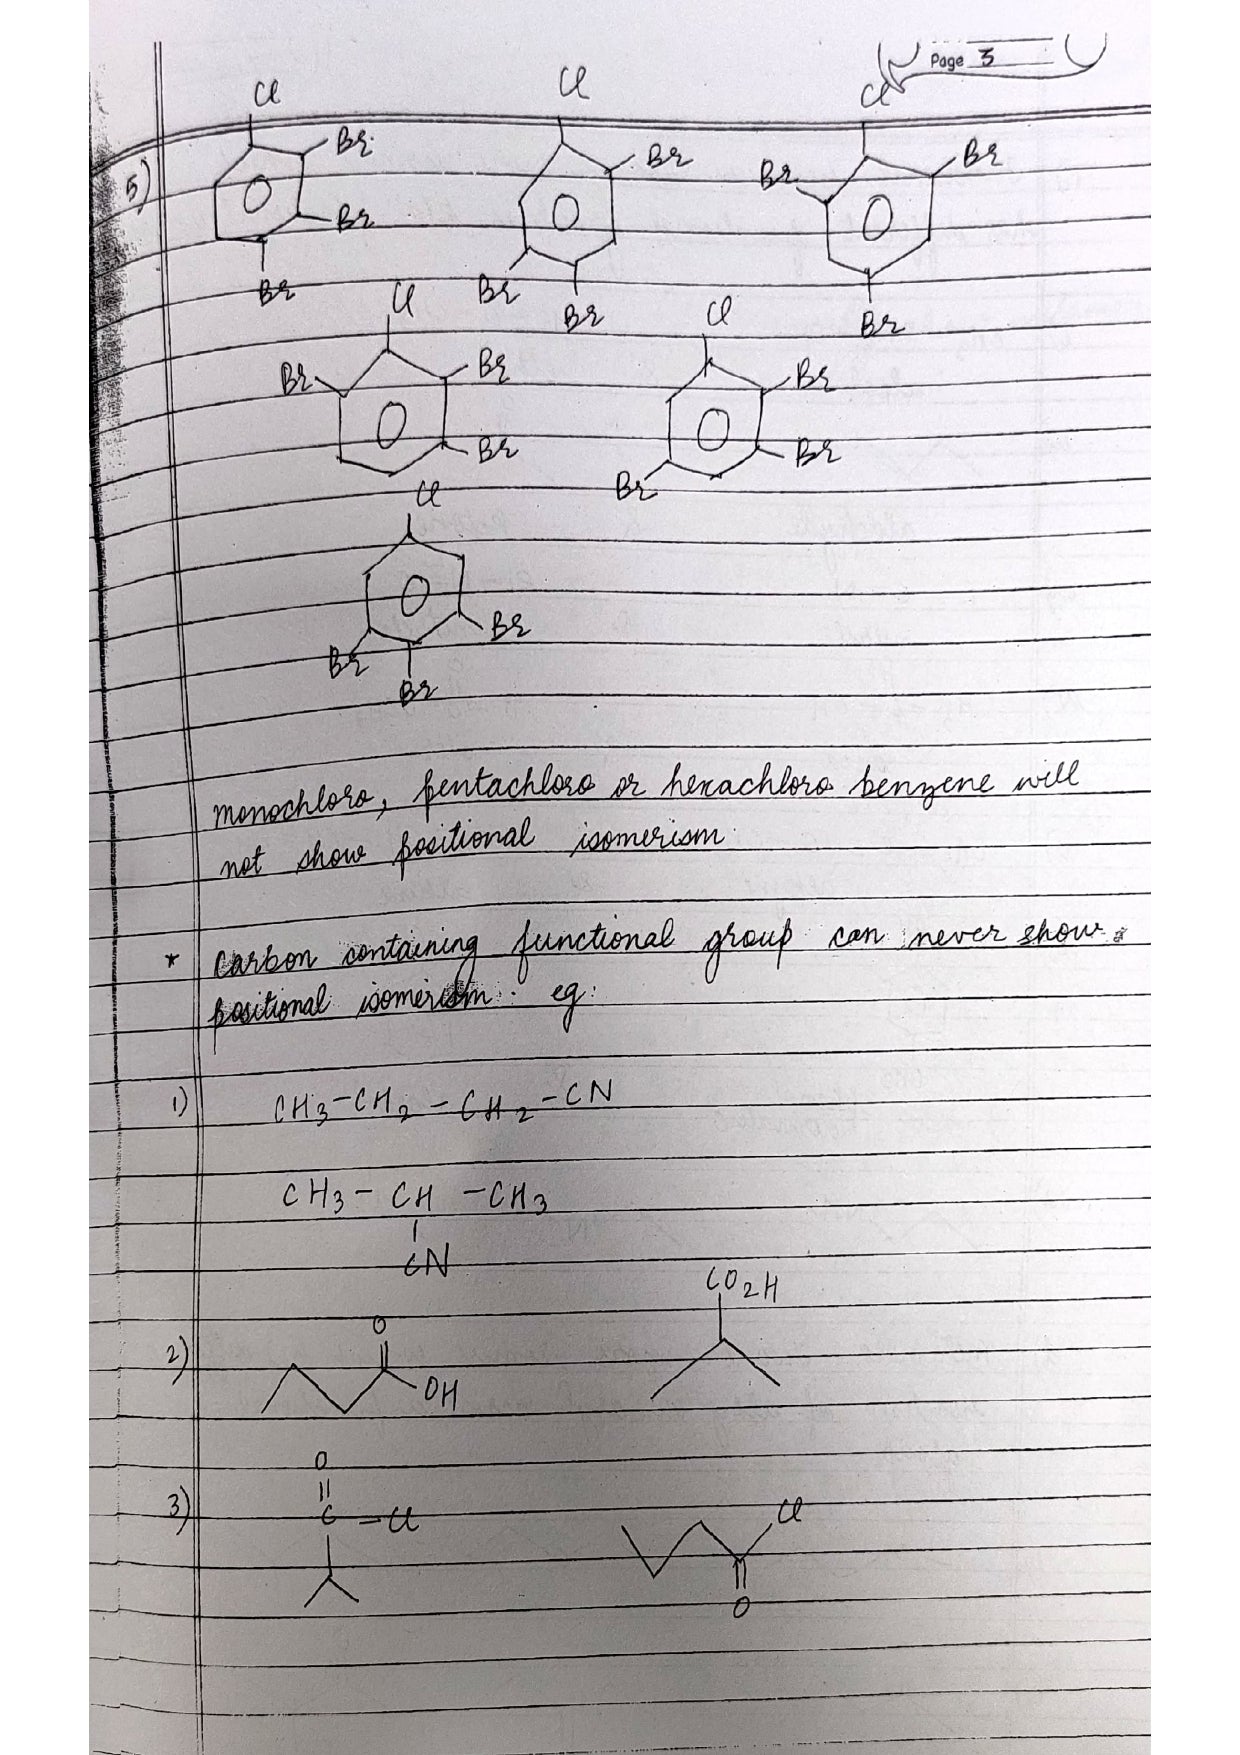 Page 3
Cl Cl Cl
5) Br Br Br Br
Br
Br Br Br Br
Cl Cl
Br Br Br
Br Br
Br
Cl
Br Br
Br
monochloro, pentachloro or hexachloro benzene will
not show positional isomerism.
* Carbon containing functional group can never show
positional isomerism. eg:
1) CH3-CH2-CH2-CN
CH3-CH-CH3
CN
CO2H
2) O
OH
O
3) C-Cl Cl
O